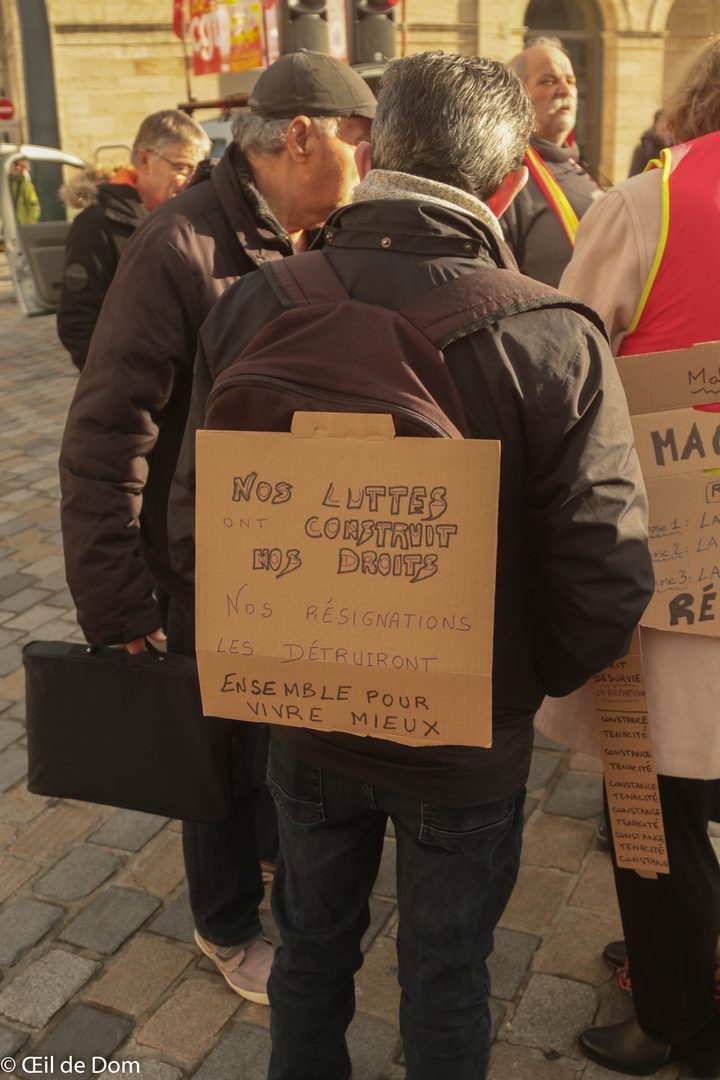 cgt
NOS LUTTES
ONT CONSTRUIT
NOS DROITS
NOS RÉSIGNATIONS
LES DÉTRUIRONT
ENSEMBLE POUR
VIVRE MIEUX
MA
LA
LA
LA
RÉ
LA RÉPARTITION
CONSTANCE
TENACITÉ
CONSTANCE
TENACITÉ
CONSTANCE
TENACITÉ
CONSTANCE
TENACITÉ
CONSTANCE
TENACITÉ
CONSTANC
© Œil de Dom